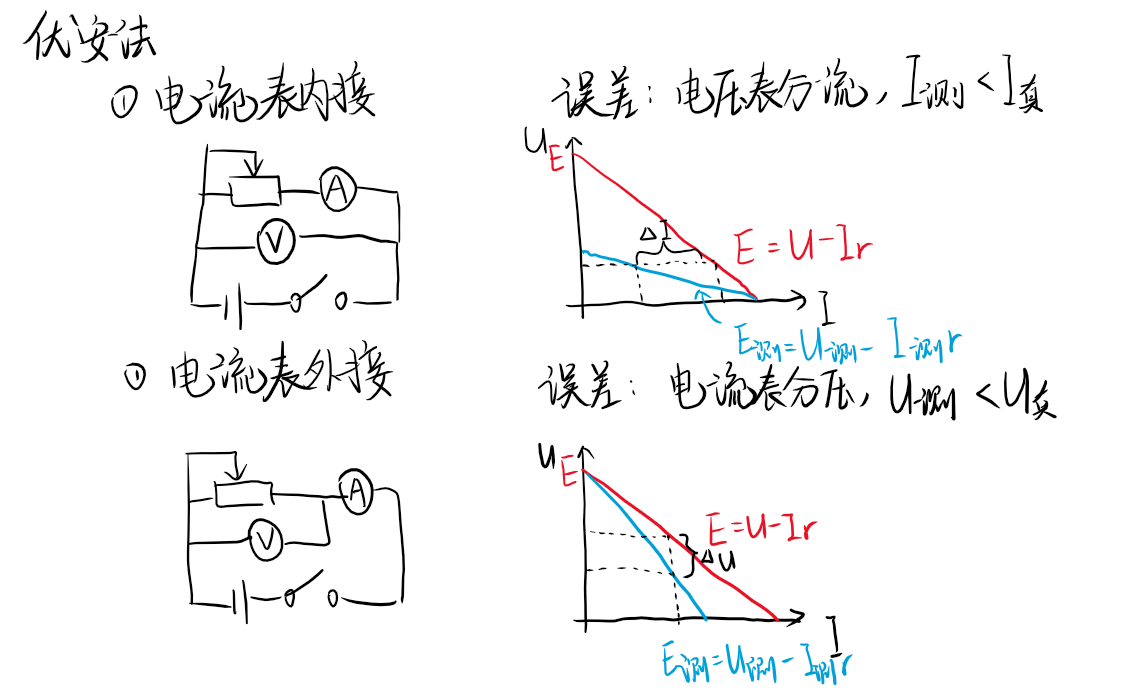 伏安法
① 电流表内接
误差：电压表分流，I测<I真
A
V
U
E
ΔI
E=U-Ir
I
E测=U测-I测r
① 电流表外接
误差：电流表分压，U测<U真
A
V
U
E
E=U-Ir
ΔU
I
E测=U测-I测r